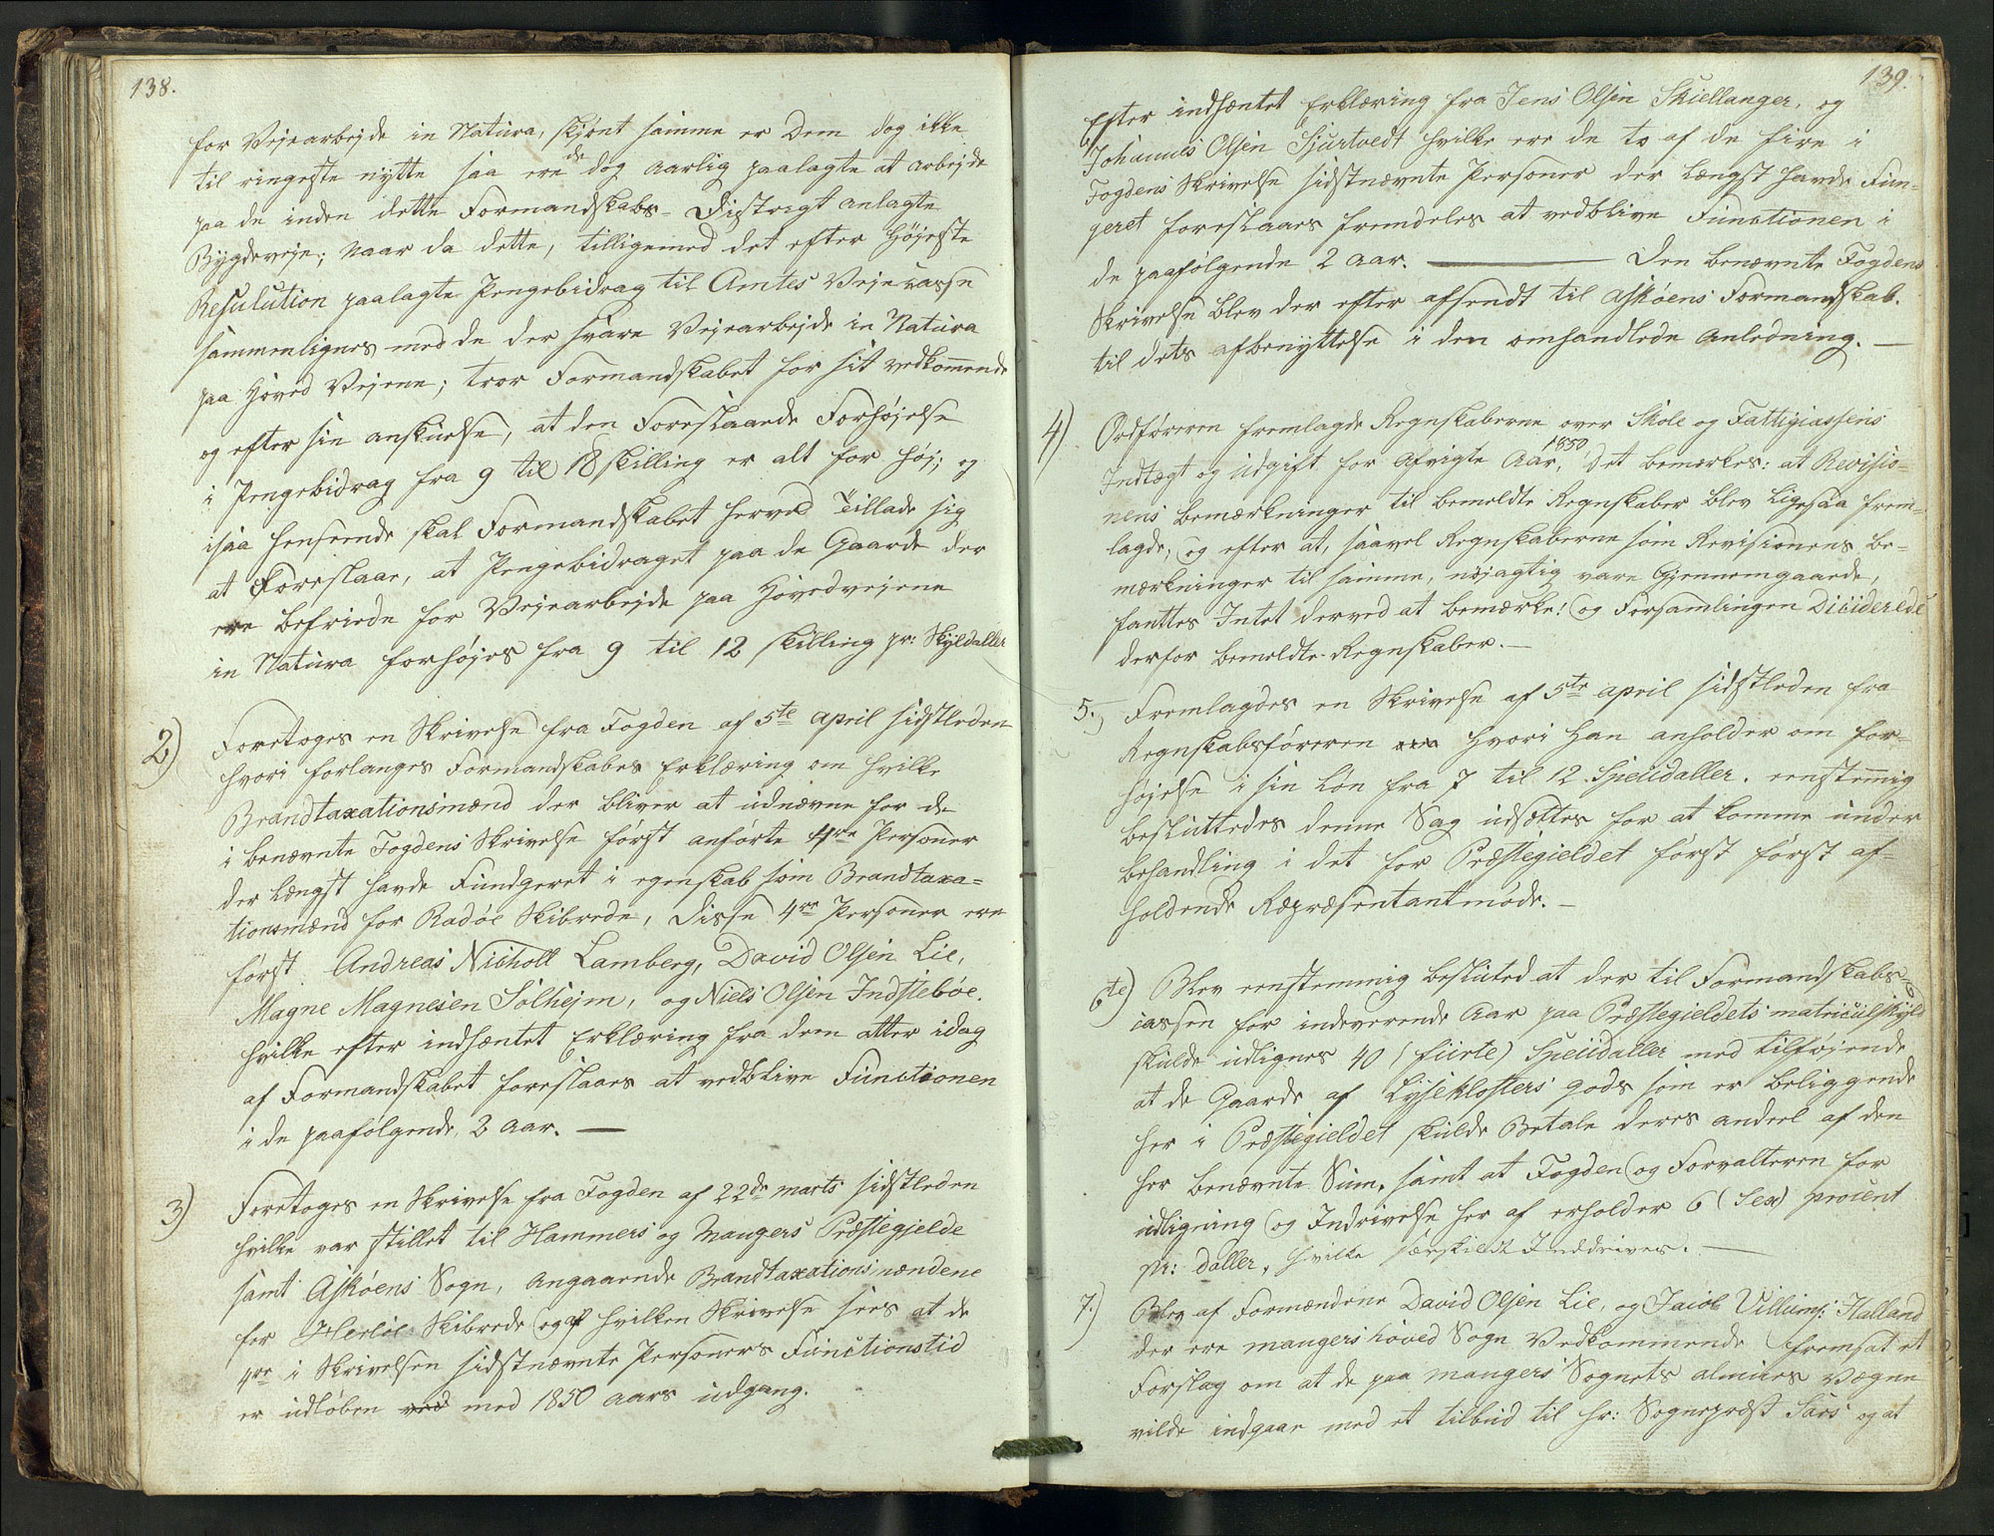 138.
for Vejearbejde in Natura, skjønt samme er Dem dog ikke
til ringeste nytte saa ere de dog aarlig paalagte at arbejde
paa de inden dette Formandskabs-Distregt anlagte
Bygdeveje; naar da dette, tilligemed det efter Højeste
Resulution paalagte Pengebidrag til Amtes Vejecasse
sammenlignes med de der svare Vejearbejde in Natura
paa Hoved Vejene; troer Formandskabet for sit vedkommende
og efter sin anskuelse, at den Foreslaaede Forhøjelse
i Pengebidrag fra 9 til 18 skilling er alt for høj; og
isaa henseende skal Formandskabet herved Tillade sig
at Foreslaae, at Pengebidraget paa de Gaarde der
ere befriede for Vejearbejde paa Hovedvejene
in Natura forhøjes fra 9 til 12 skilling pr: Skyldaller
2) Foretoges en Skrivelse fra Fogden af 5te april sidstleden
hvori forlanges Formandskabes Erklæring om hvilke
Brandtaxationsmænd der bliver at udnævne for de
i benævnte Fogdens Skrivelse først anførte 4re Personer
der længst havde Fundgeret i egenskab som Brandtaxa=
tionsmænd for Radøe Skibrede, Disse 4re Personer ere
først Andreas Nicholl Lamberg, David Olsen Lie,
Magne Magnesen Solhejm, og Niels Olsen Indstebøe.
hvilke efter indhæntet Erklæring fra dem atter idag
af Formandskabet foreslaaes at vedblive Functionen
i de paafølgende 2 aar. —
3) Foretoges en Skrivelse fra Fogden af 22de marts sidstleden
hvilke var stillet til Hammers og Mangers Præstegjelde
samt Askøens Sogn, angaaende Brandtaxationsmændene
for Herløe Skibrede og af hvilken Skrivelse sees at de
4re i Skrivelsen sidstnævnte Personers Functionstid
er udløben ved med 1850 aars udgang.
139.
Efter indhæntet Erklæring fra Jens Olsen Skiellanger, og
Johannes Olsen Sjurtvedt hvilke ere de to af de fire i
Fogdens Skrivelse sidstnævnte Personer der længst havde Fun=
geret foreslaaes fremdeles at vedblive Functionen i
de paafølgende 2 aar. — Den benævnte Fogdens
Skrivelse blev der efter afsendt til Askøens Formandskab.
til dets afbenyttelse i den omhandlede anledning. —
4) Ordføreren fremlagde Regnskaberne over Skole og Fattigcassens
Indtægt og udgift for afvigte Aar, 1850, det bemærkes: at Revisio=
nens bemærkninger til bemeldte Regnskaber blev ligesaa frem=
lagde; og efter at, saavel Regnskaberne som Revisionens be=
mærkninger til samme, nøjagtig vare Gjennemgaaede,
fanttes Intet derved at bemærke: og Forsamlingen Diciderede
derfor bemeldte Regnskaber. —
5.) Fremlagdes en Skrivelse af 5te april sidstleden fra
Regnskabsføreren hvori Han anholder om for=
højelse i sin løn fra 7 til 12 Speciedaller. eenstemig
besluttedes denne Sag udsættes for at komme under
behandling i det for Præstegieldet først først af=
holdende Repræsentantmøde. —
6te) Blev eenstemmig besluted at der til Formandskabs=
cassen for indeværende Aar paa Præstegieldets matriculskyld
skulde udlignes 40 (fiirte) Speciedaller med tilføjende
at de Gaarde af Lyseklosters gods som er beliggende
her i Præstegieldet skulde Betale deres andeel af den
her benævnte Sum, samt at Fogden og Forvalteren for
udligning og Indrivelse her af erholder 6 (Sex) procent
pr: daller, hvilke særskildt Inddrives. —
7.) Blev af Formændene David Olsen Lie, og Jacob Villums: Halland
der ere mangers hoved Sogn Vedkommende fremsat et
Forslag om at de paa mangers Sognets almues Vægne
vilde indgaae med et tilbud til hr: Sognepræst Sars og at